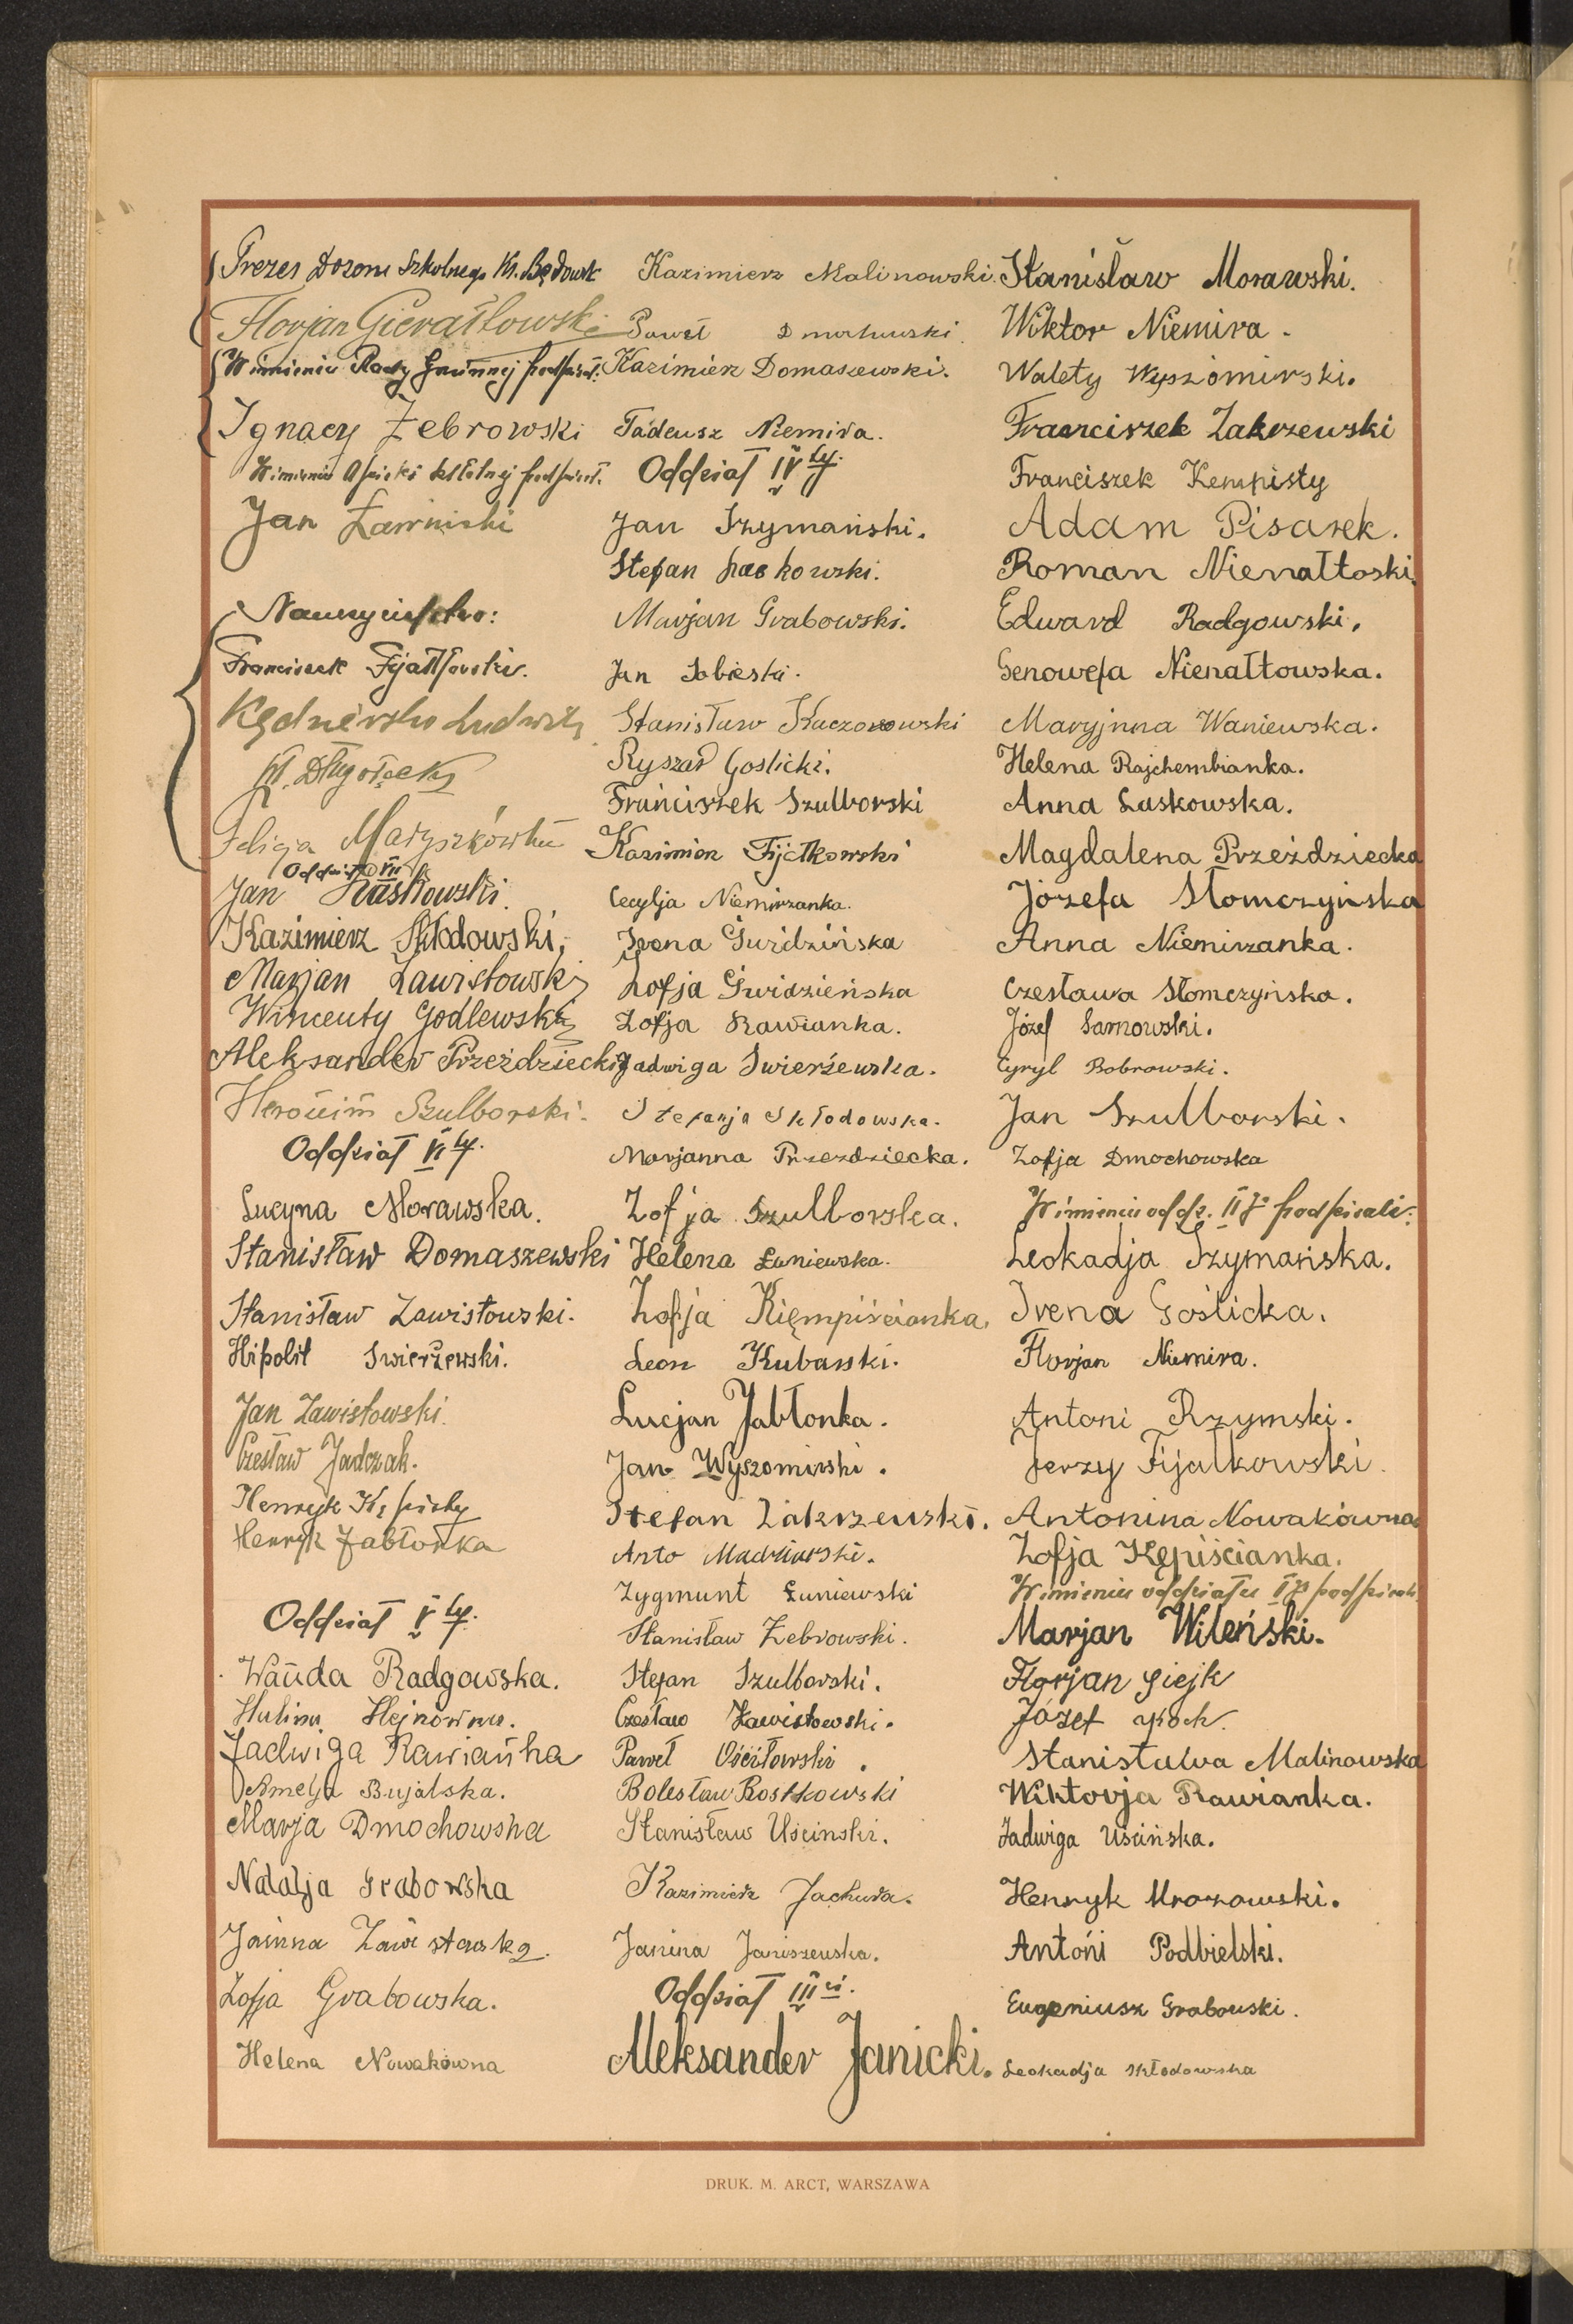 Prezes Dozoru Szkolnego Kl.
Florjan Gierałtowski
W imieniu Rady Gminnej podpisał:
Ignacy Żebrowski
W imieniu Opieki Szkolnej podpisał.
Jan Ławniski
Nauczycielstwo:
Franciszek Fijałkowski.
Ludwik
Wł. Długołęcki
Felicja Maryszkówna
Oddział VII
Jan Raszkowski.
Kazimierz Skłodowski,
Marjan Zawistowski
Wincenty Godlewski
Aleksander Przeździecki
Heronim Szulborski.
Oddział VI ty.
Lucyna Morawska.
Stanisław Domaszewski
Stanisław Zawistowski.
Hipolit Swierżewski.
Jan Zawistowski.
Czesław Jadczak.
Henryk Kępisty
Henryk Jabłonka
Oddział V ty.
Wanda Radgowska.
Halina Hejnówna.
Jadwiga Rawianka
Amelja Bujalska.
Marja Dmochowska
Natalja Grabowska
Janina Zawistowska.
Zofja Grabowska.
Helena Nowakówna
Kazimierz Malinowski.
Paweł Dmochowski.
Kazimierz Domaszewski.
Tadeusz Niemira.
Oddział IV ty.
Jan Szymański.
Stefan Laskowski.
Marjan Grabowski.
Jan Sobieski.
Stanisław Kaczorowski
Ryszard Goslicki.
Franciszek Szulborski
Kazimierz Fijałkowski
Cecylja Niemirzanka.
Irena Świdzińska
Zofja Świdzieńska
Zofja Rawianka.
Jadwiga Swierżewska.
Stefanja Skłodowska.
Marjanna Przezdziecka.
Zofja Szulborska.
Helena Łuniewska.
Zofja Kięmpiścianka.
Leon Kubarski.
Lucjan Jabłonka.
Jan Wyszomirski.
Stefan Zakrzewski.
Anto Madziarski.
Zygmunt Łuniewski
Stanisław Żebrowski.
Stefan Szulborski.
Czesław Zawistowski.
Paweł Ościłowski.
Bolesław Roszkowski
Stanisław Uścinski.
Kazimierz Jachura.
Janina Janiszewska.
Oddział III ci.
Aleksander Janicki.
Stanisław Morawski.
Wiktor Niemira.
Walety Wyszomirski.
Franciszek Zakrzewski
Franciszek Kempisty
Adam Pisarek.
Roman Nienałtoski.
Edward Radgowski.
Genowefa Nienałtowska.
Maryjnna Waniewska.
Helena Rajchembianka.
Anna Laskowska.
Magdalena Przeździecka
Józefa Słomczyńska
Anna Niemirzanka.
Czesława Słomczyńska.
Józef Sarnowski.
Cyryl Bobrowski.
Jan Szulborski.
Zofja Dmochowska
W imieniu oddz. II go podpisali:
Leokadja Szymańska.
Irena Goślicka.
Florjan Niemira.
Antoni Rzymski.
Jerzy Fijałkowski.
Antonina Nowakówna
Zofja Kępiścianka.
W imieniu oddziału I go podpisali
Marjan Wileński.
Florjan Giejk
Józef Koch.
Stanisława Malinowska
Wiktorja Rawianka.
Jadwiga Uścińska.
Henryk Mrozowski.
Antoni Podbielski.
Eugeniusz Grabowski.
Leokadja Skłodowska
DRUK. M. ARCT, WARSZAWA